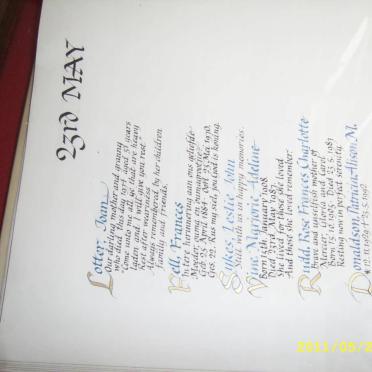 23rd MAY
Lotter, Joan
Our darling mother and granny
who died this day 1971 aged 51 years
"Come unto me all ye that are heavy
laden and I will give you rest."
Rest after weariness.
Always remembered by her children,
family and friends.
Nell, Frances
In tere herinnering aan ons geliefde
Moeder, Ouma, Oumagrootjie.
Geb. 25 April 1884 - Oorl. 23 Mei 1970.
Ges. 22. Rus my siel, jou God is koning.
Sykes, Leslie John
Still with us in happy memories.
Vine, Margaret Adeline
Born 15th January 1908
Died 23rd May 1987.
She lived for those she loved
And those she loved remember.
Rudd, Rose Frances Charlotte
Brave and unselfish mother of
Mercier, Lorna and Carol
Born 15.10.1903 - Died 23.5.1987
Resting now in perfect serenity.
Donaldson, Patricia Allison. M.